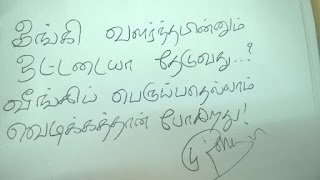 கிங்கி வளர்ந்தமின்னும்
ஒட்டடையா தேடுவது..?
வீங்கிப் பெருப்பதெல்லாம்
வெடிக்கத்தான் போகிறது!